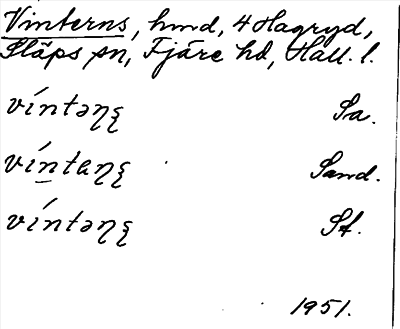 Vinterns, hmd, 4 Hagryd,
Släps sn, Fjäre hd, Hall. l.
víntəɳʂ Sa.
víntaɳʂ Sand.
víntəɳʂ Sf.
1951.